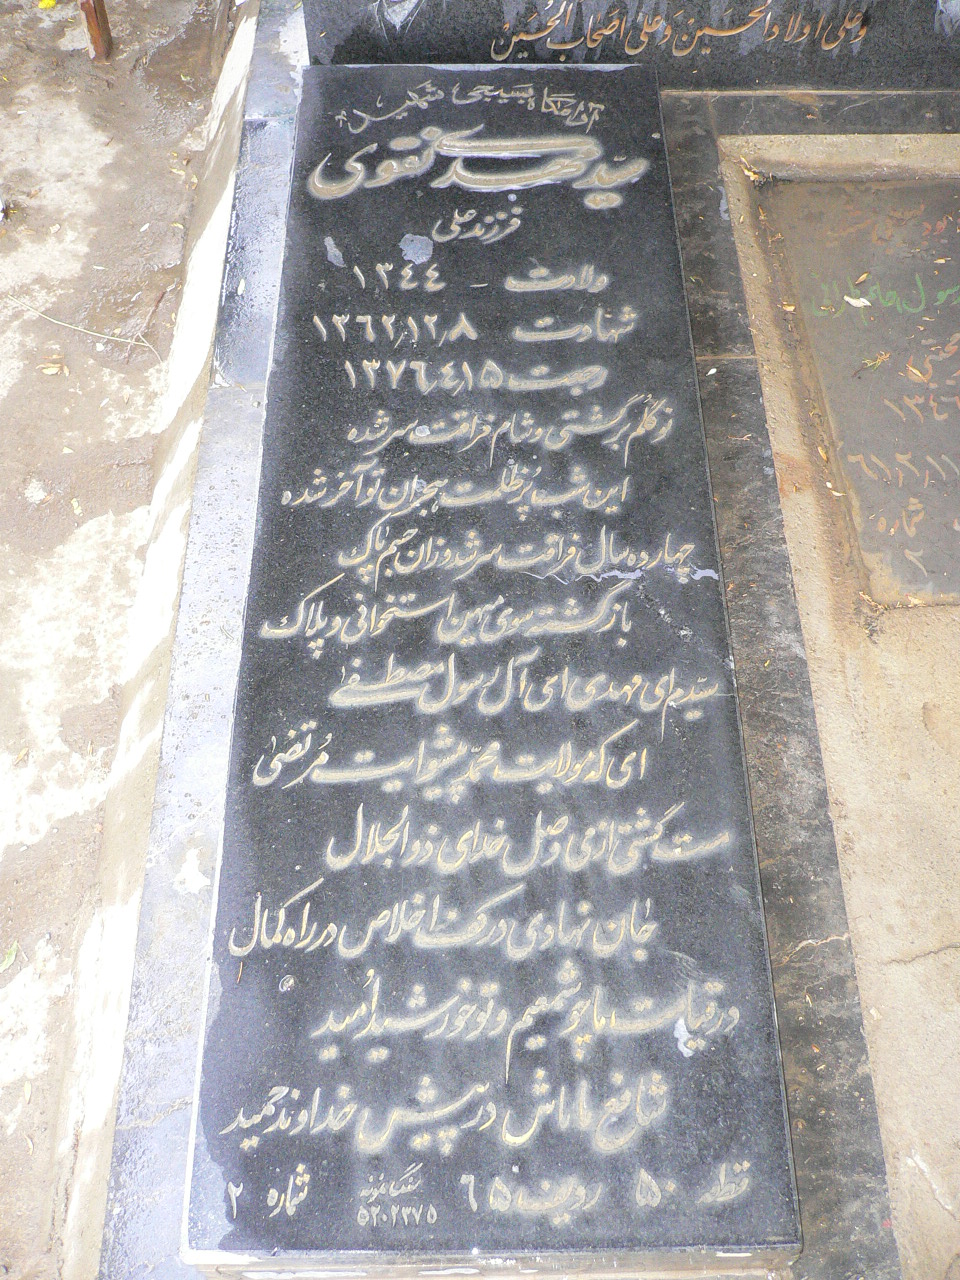 وعلی اولاد الحسین وعلی اصحاب الحسین
آرامگاه بسیجی شهید
سید محمد تقوی
فرزند علی
ولادت - ۱۳۴۴
شهادت ۱۳۶۲٫۱۲٫۸
رجعت ۱۳۷۶٫۴٫۱۵
ز گلم برگشتی و شام فراقت سر شده
این شب پُر ظلمت هجران تو آخر شده
چهارده سال فراقت سر شد و زان جسم پاک
باز گشت سوی میهن استخوانی و پلاک
سیدم ای مهدی ای آل رسول مصطفی
ای که مولایت محمد پیشوایت مُرتضیٰ
ست گشتی از می وصل خدای ذوالجلال
جان نهادی در کف اخلاص در راه کمال
در قیامت ما چو شمعیم و تو خورشید اُمید
شافع ما باش در پیش خداوند حمید
قطعه ۵۰ ردیف ۶۵ شماره ۲
سنگ نمونه
۵۲۰۲۳۷۵
رسول
مجتبی
۱۳۴۶
شماره
۲